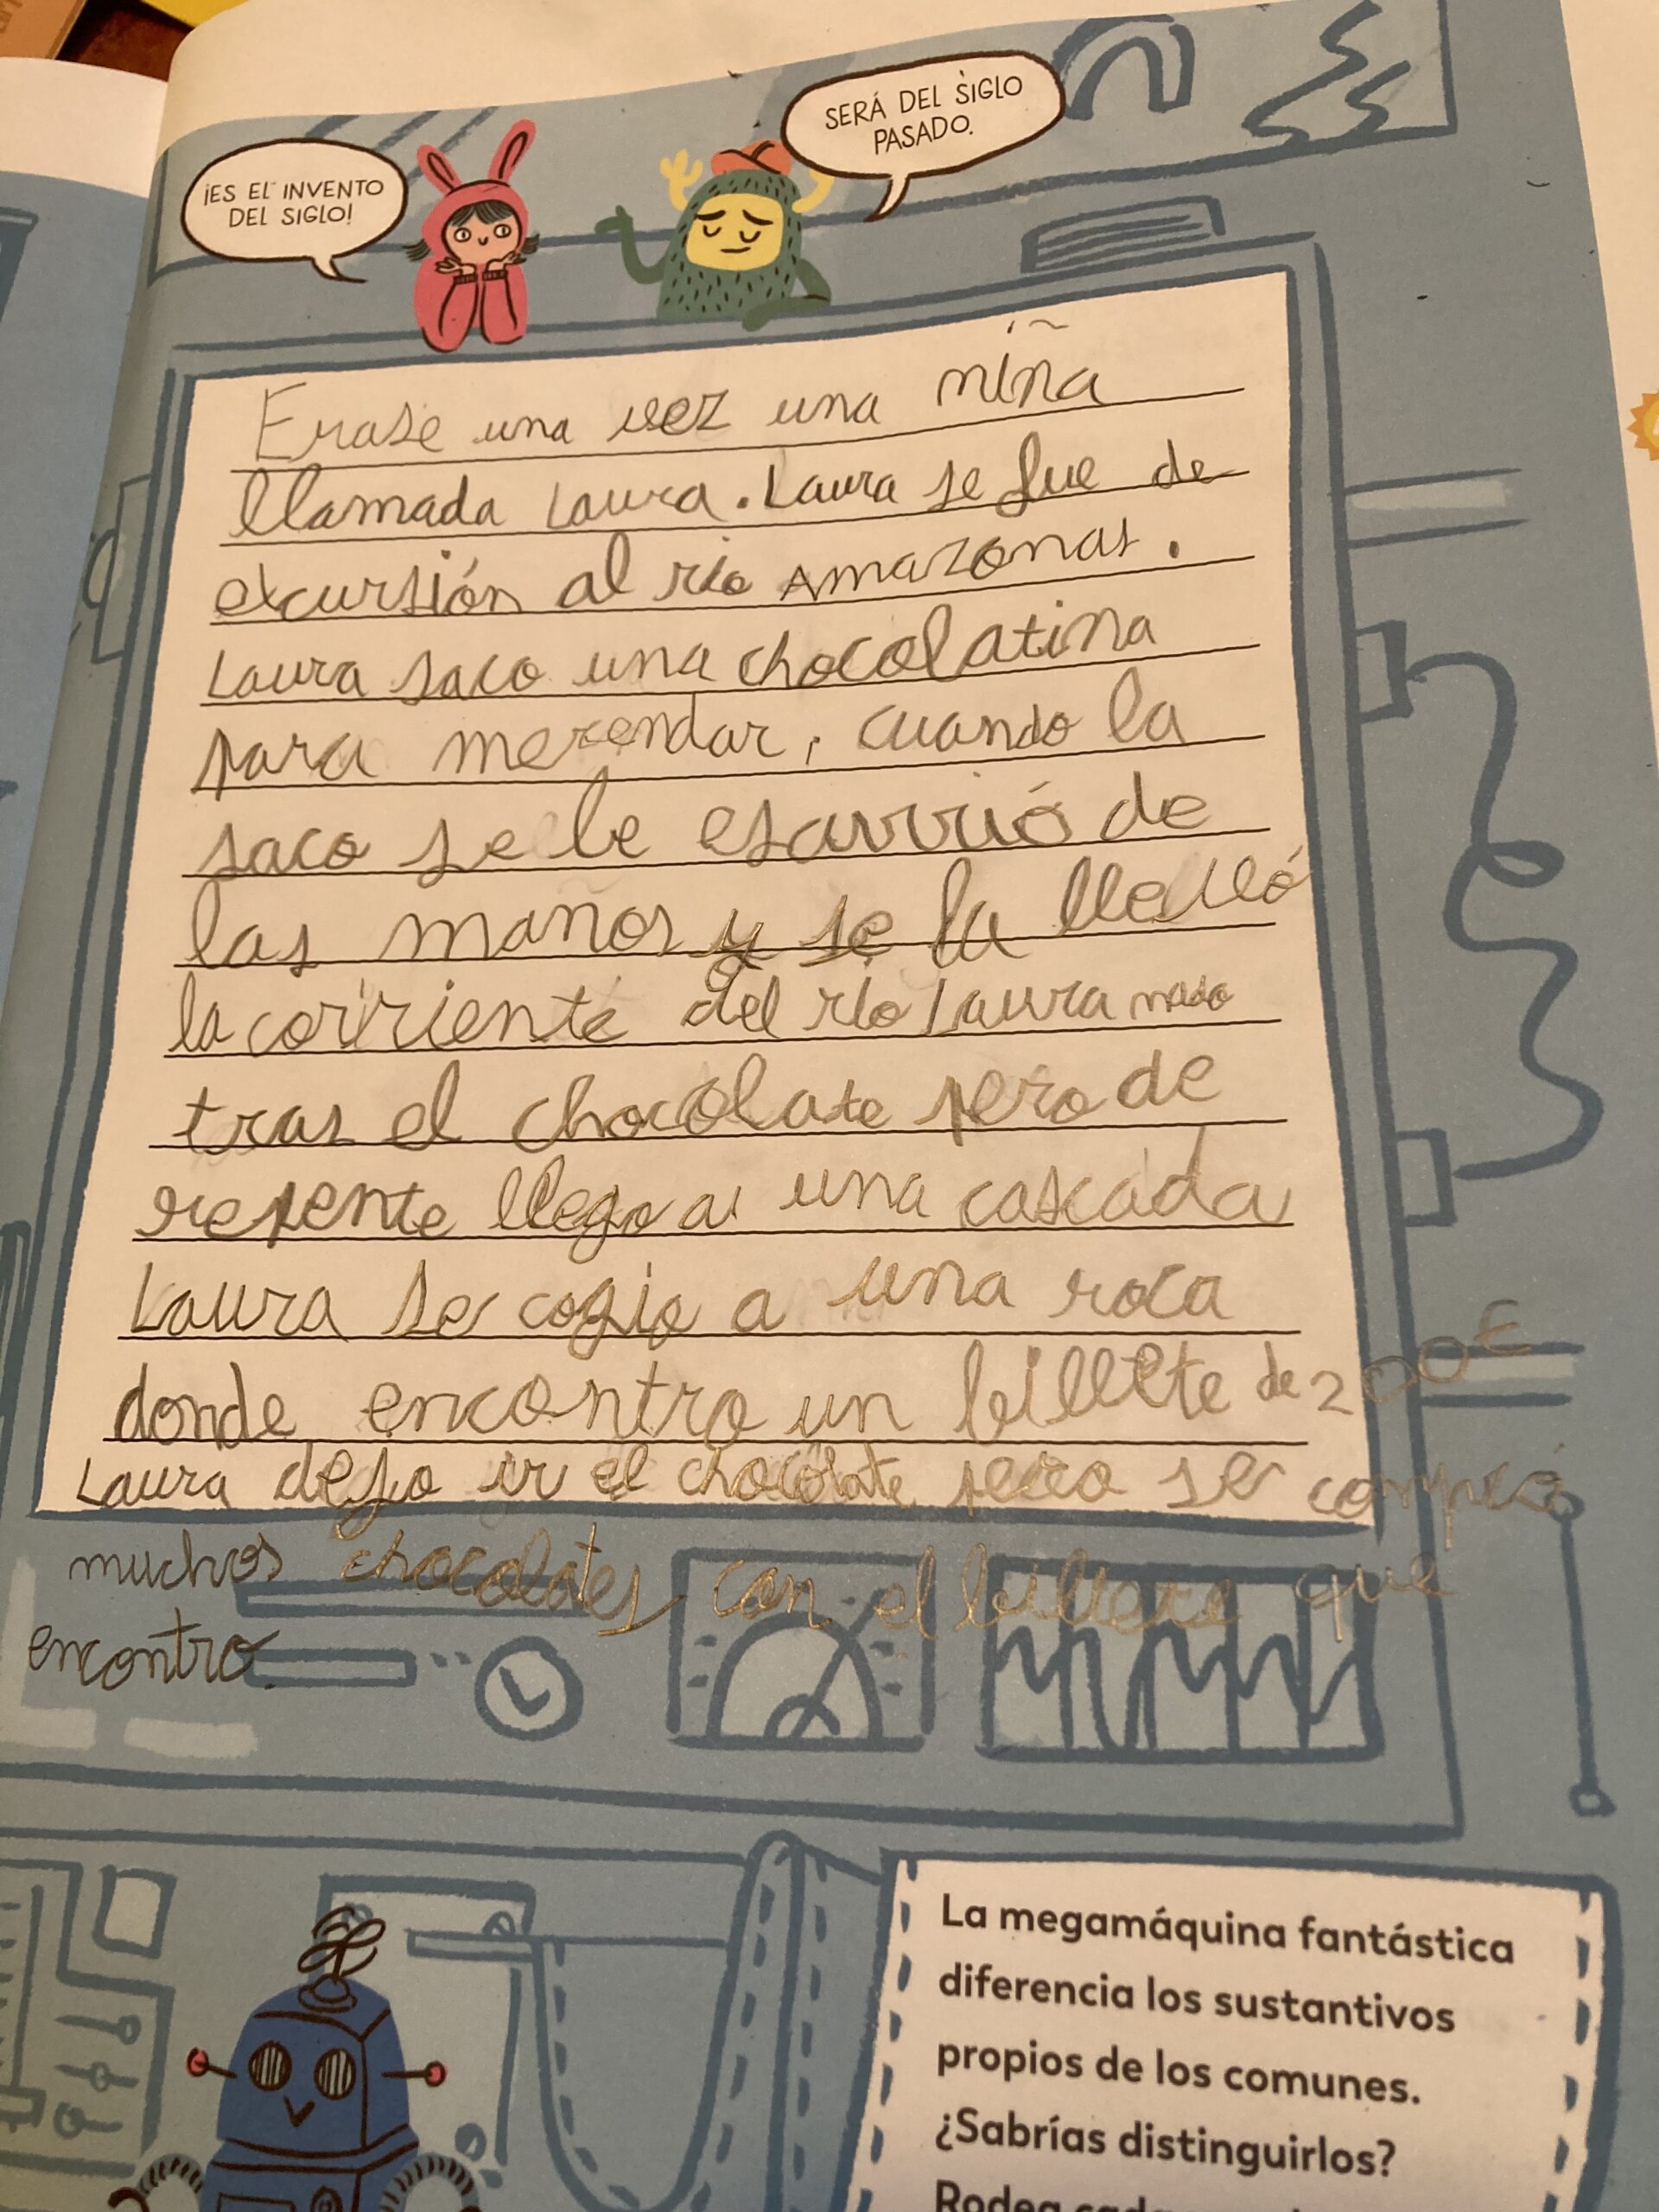 ¡ES EL INVENTO
DEL SIGLO!
SERÁ DEL SIGLO
PASADO.
Erase una vez una niña
llamada Laura. Laura se fue de
excursión al río Amazonas.
Laura saco una chocolatina
para merendar, cuando la
saco se le escurrió de
las manos y se la llevó
la corriente del río Laura nado
tras el chocolate pero de
repente llego a una cascada
Laura se cogio a una roca
donde encontro un billete de 200€
Laura dejo ir el chocolate pero se compró
muchos chocolates con el billete que
encontro.
La megamáquina fantástica
diferencia los sustantivos
propios de los comunes.
¿Sabrías distinguirlos?
Rodea